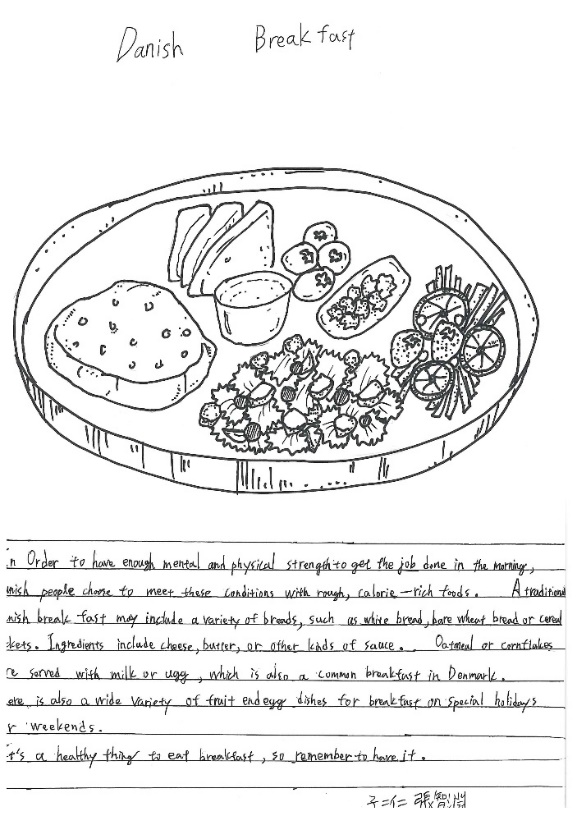 Danish Breakfast
n Order to have enough mental and physical strength to get the job done in the morning,
nish people choose to meet these conditions with rough, calorie-rich foods. A traditional
nish break fast may include a variety of breads, such as white bread, bare wheat bread or cereal
kets. Ingredients include cheese, butter, or other kinds of sauce. Oatmeal or cornflakes
e served with milk or ugg, which is also a common breakfast in Denmark.
ere is also a wide variety of fruit end egg dishes for breakfast on special holidays
r weekends.
t's a healthy thing to eat breakfast, so remember to have it.
張智